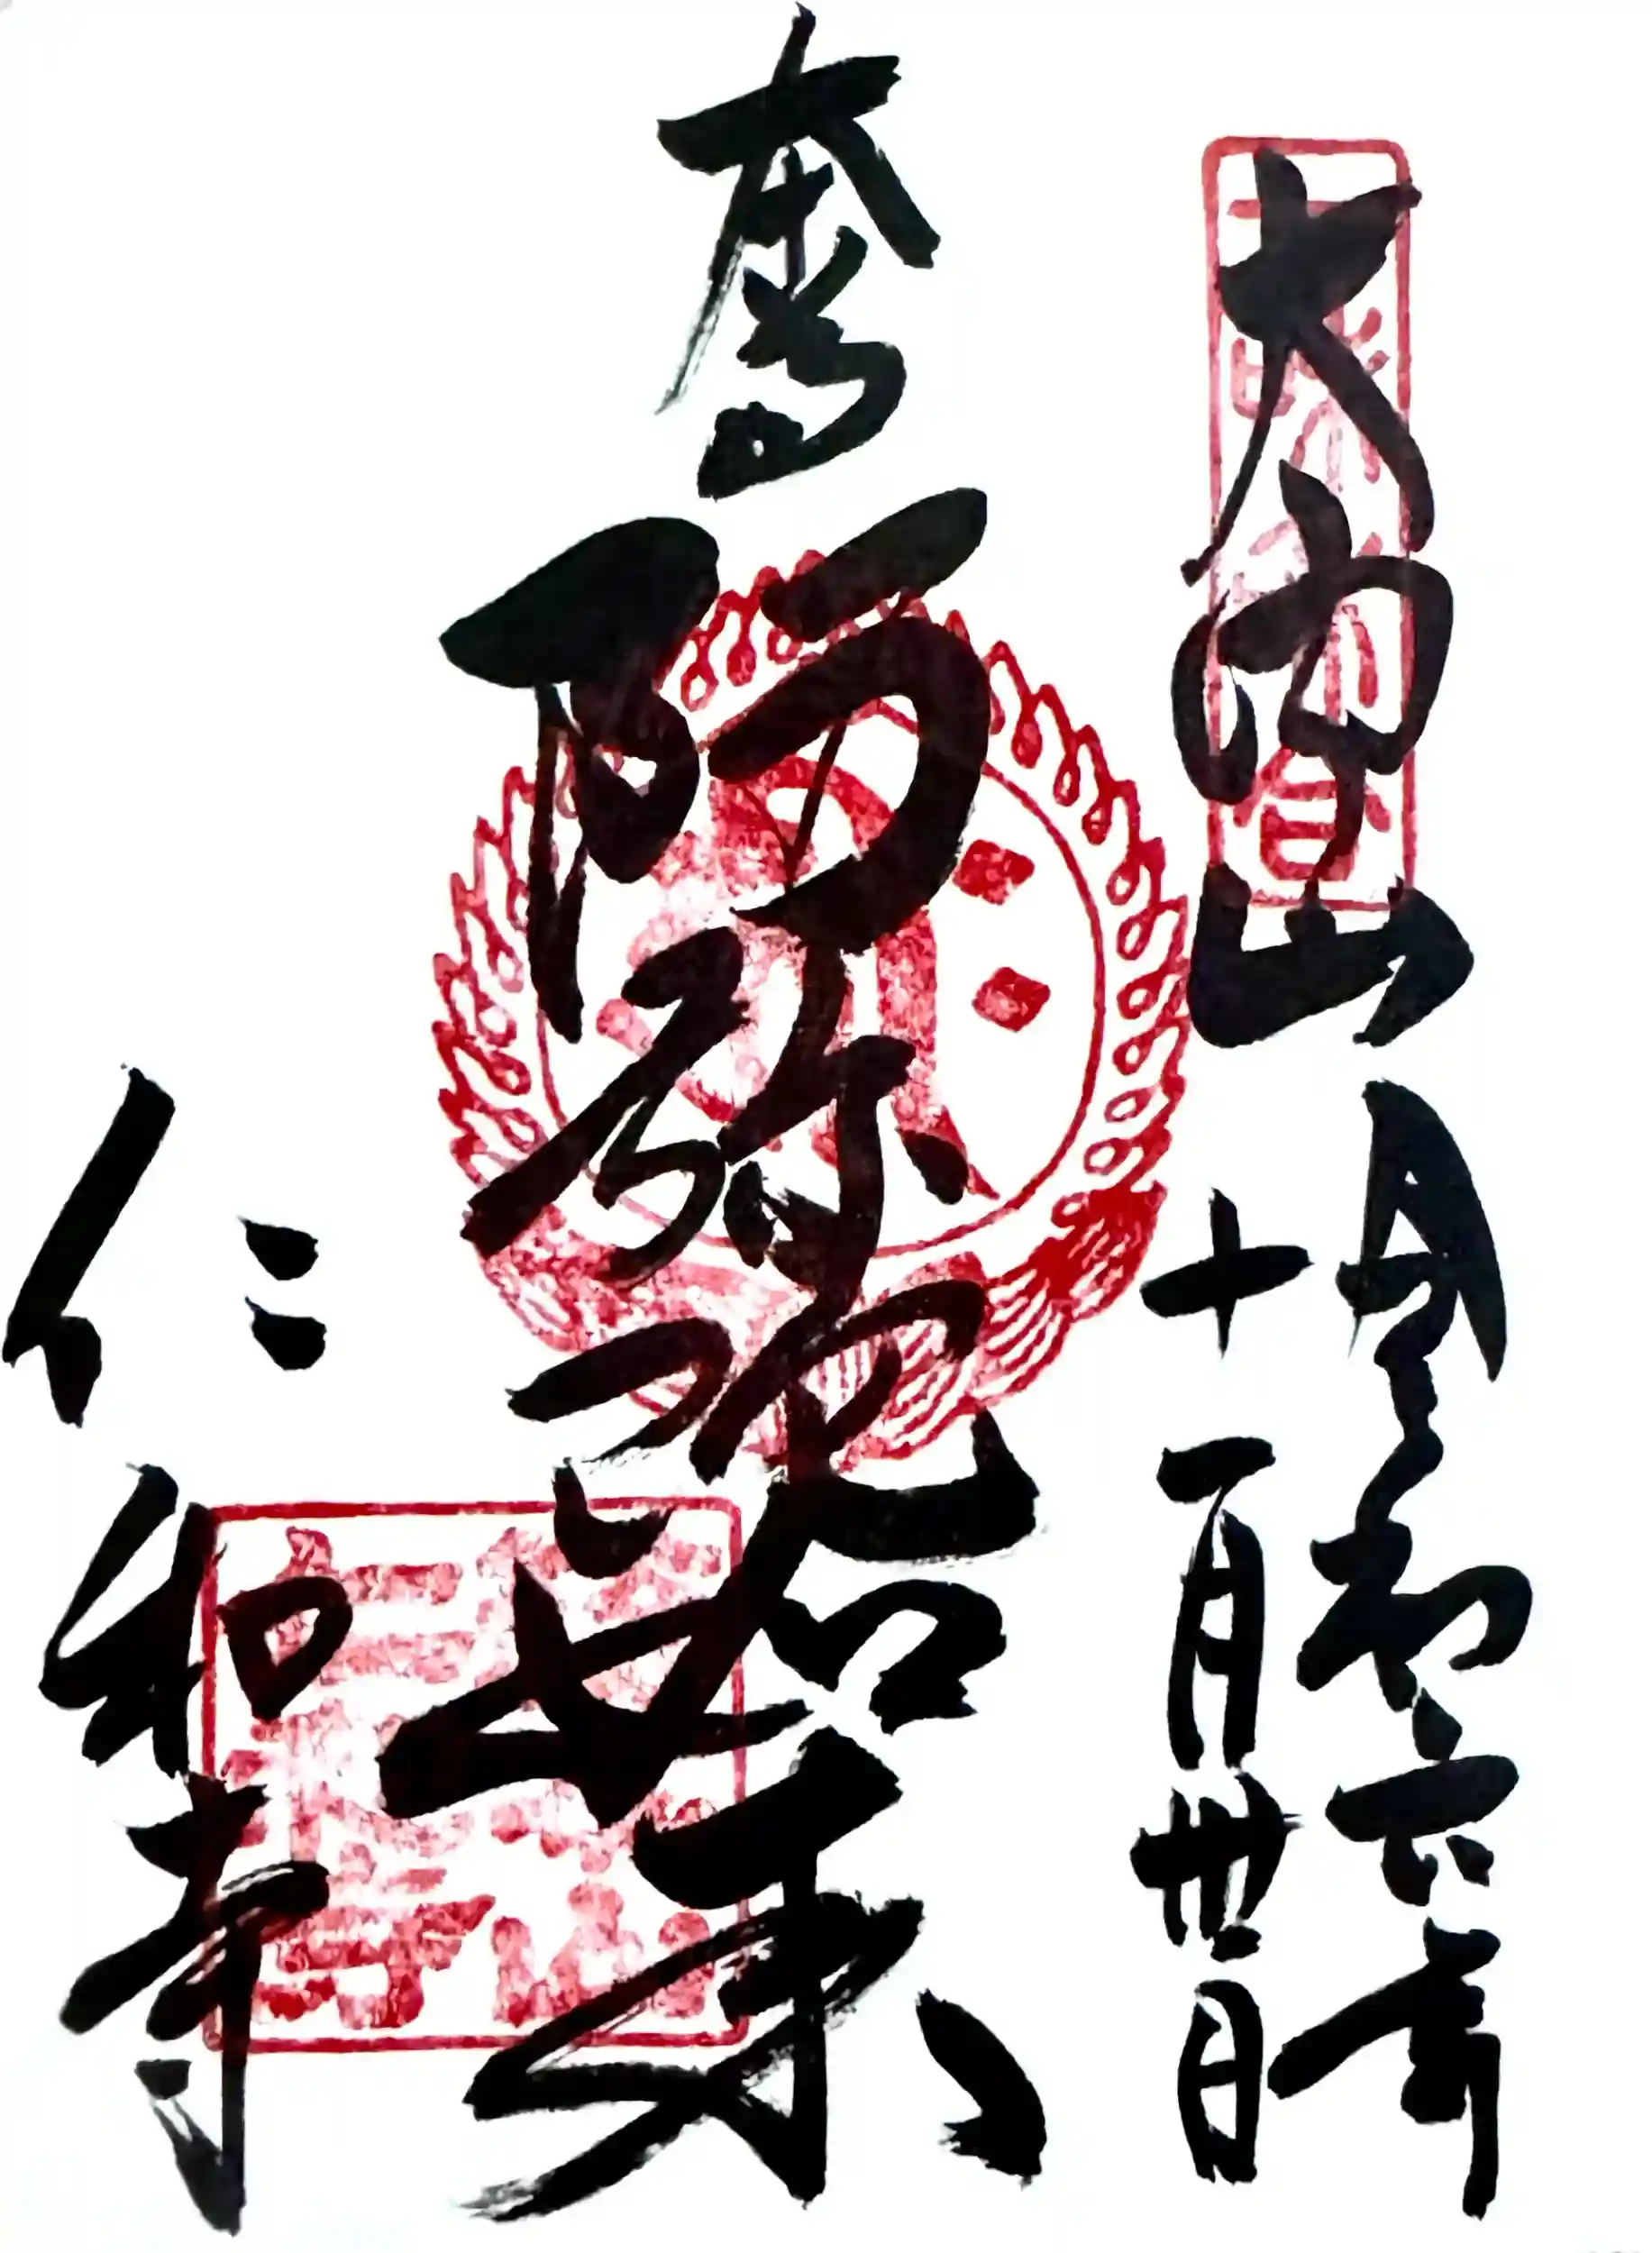 大内山
令和六年
十一月卅日
阿弥陀如来
仁和寺